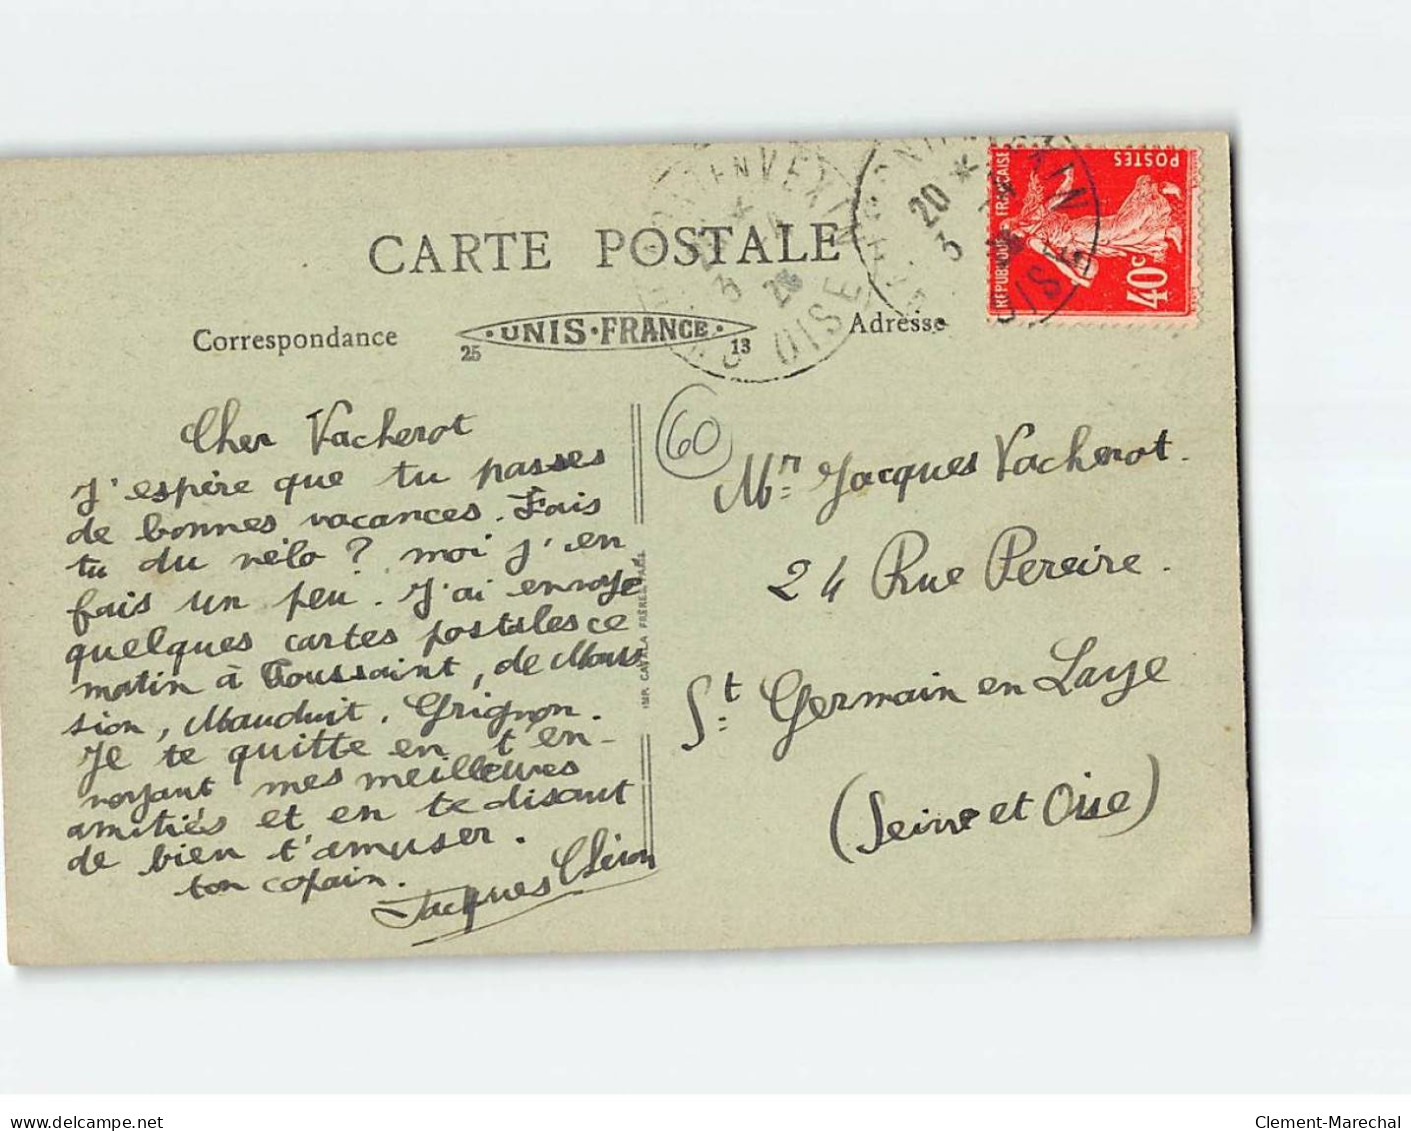 CARTE POSTALE
Correspondance
25
·UNIS·FRANCE·
13
Adresse
REPUBLIQUE FRANÇAISE
POSTES
40c
20 *
3
OISE
VEXIN
20 *
3
OISE
60
Cher Vacherot
J'espère que tu passes
de bonnes vacances. Fais
tu du vélo ? moi j'en
fais un peu. J'ai envoyé
quelques cartes postales ce
matin à Toussaint, de Mous
sion, Mauduit, Grignon.
Je te quitte en t'en-
voyant mes meilleures
amitiés et en te disant
de bien t'amuser.
ton copain.
Jacques
IMP. CATALA FRERES, PARIS
Mr. Jacques Vacherot.
24 Rue Pereire.
St. Germain en Laye
(Seine et Oise)
www.delcampe.net
Clement-Marechal